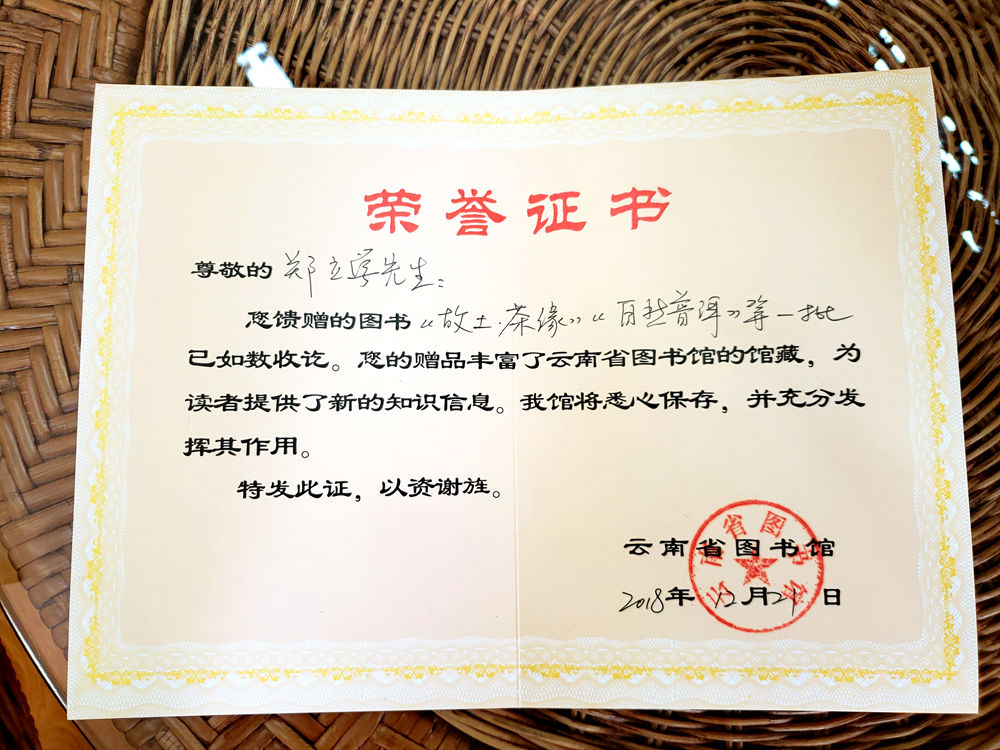 荣誉证书
尊敬的郑立学先生:
您馈赠的图书《故土·茶缘》《自然普洱》等一批
已如数收讫。您的赠品丰富了云南省图书馆的馆藏，为
读者提供了新的知识信息。我馆将悉心保存，并充分发
挥其作用。
特发此证，以资谢旌。
云南省图书馆
2018年12月21日
云南省图书馆